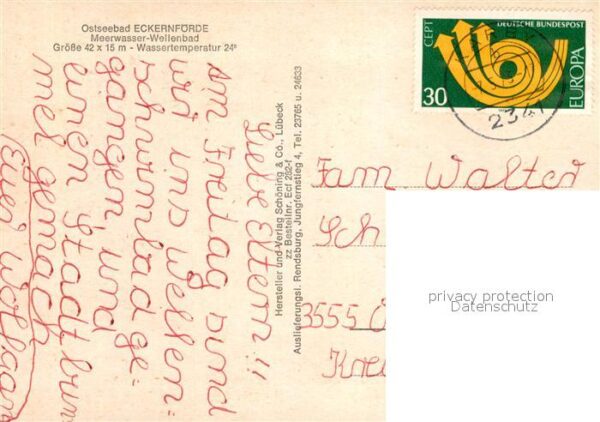 Ostseebad ECKERNFÖRDE
Meerwasser-Wellenbad
Größe 42 x 15 m - Wassertemperatur 24°
Liebe Eltern!!
Am Freitag sind
wir ins Wellen=
schwimbad ge=
gangen, und
einen Stadtbum
mel gemach
Euer Wolfgan
Hersteller und Verlag Schöning & Co., Lübeck
zz Bestellnr. Ecf 202-f
Auslieferungsl. Rendsburg, Jungfernstieg 4, Tel. 23765 u. 24633
CEPT
DEUTSCHE BUNDESPOST
30
EUROPA
2341
Fam Walter
Sch
3555
Kre
privacy protection
Datenschutz